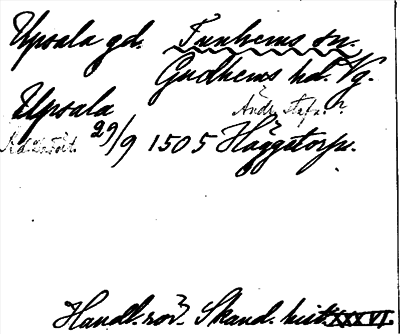 Upsala gd. Funhems sn.
Gudhems hd. Vg.
Upsala Ändr. stafn.?
29/9 1505 Häggetorp.
Handl. rör. Skand. hist. XXXVI.